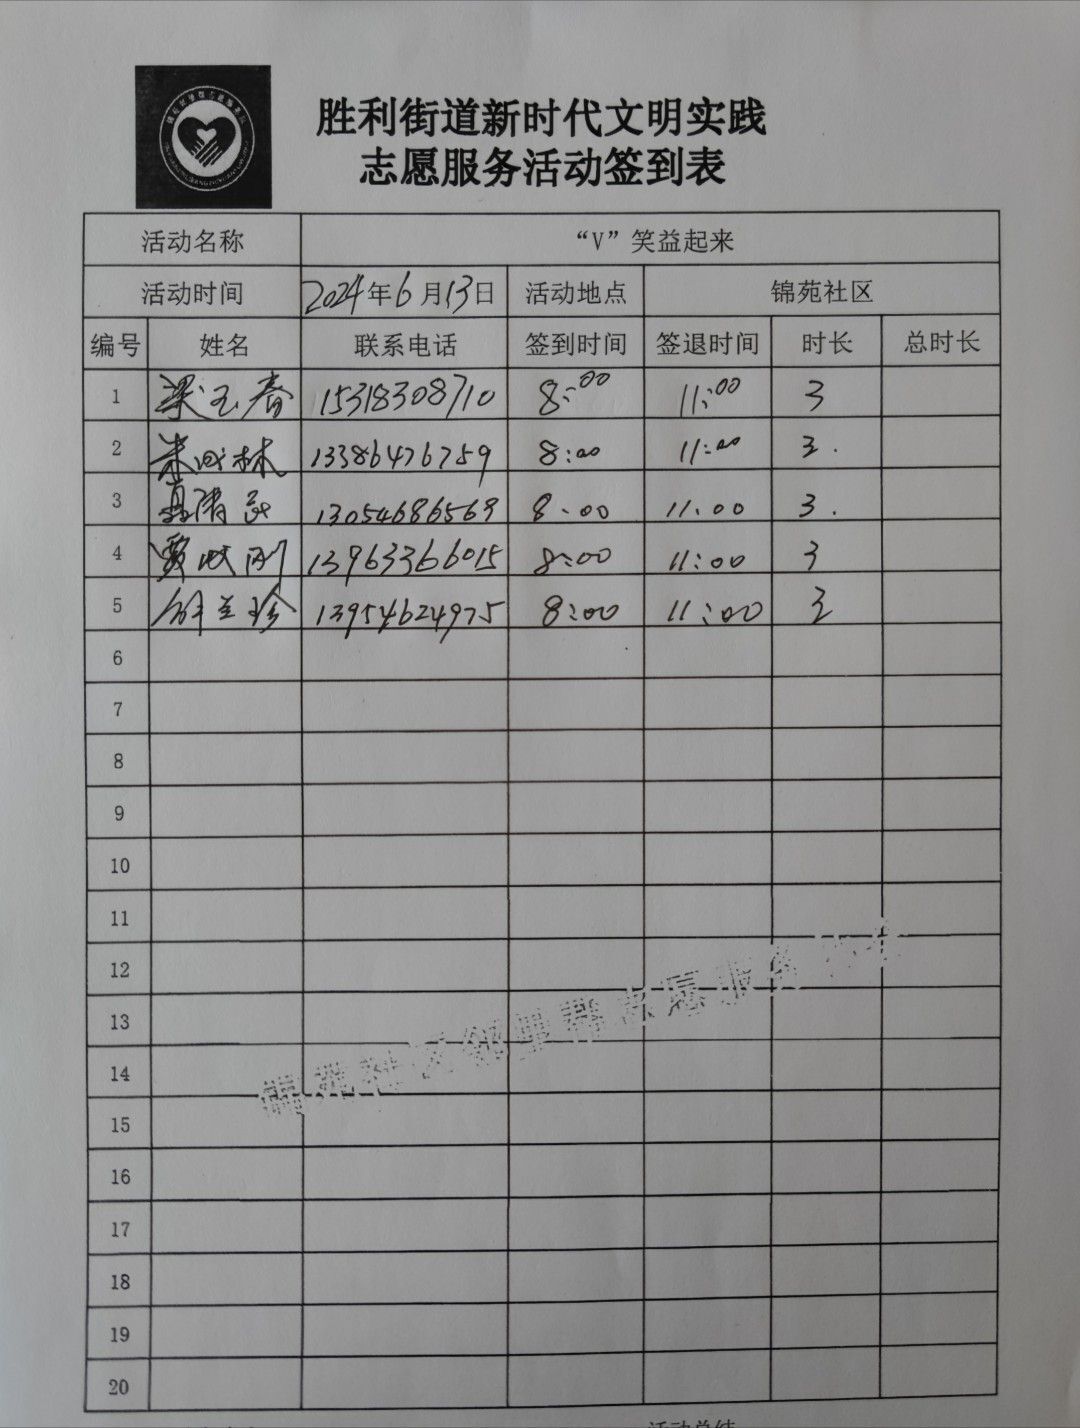 胜利街道新时代文明实践
志愿服务活动签到表
活动名称 “V”笑益起来
活动时间 2024年6月13日 活动地点 锦苑社区
编号 姓名 联系电话 签到时间 签退时间 时长 总时长
1 梁玉春 15318308710 8:00 11:00 3
2 13386476759 8:00 11:00 3.
3 13054686569 8:00 11:00 3.
4 13963366015 8:00 11:00 3
5 13954624975 8:00 11:00 3
6
7
8
9
10
11
12
13
锦苑社区邻里帮志愿服务
14
15
16
17
18
19
20
活动总结